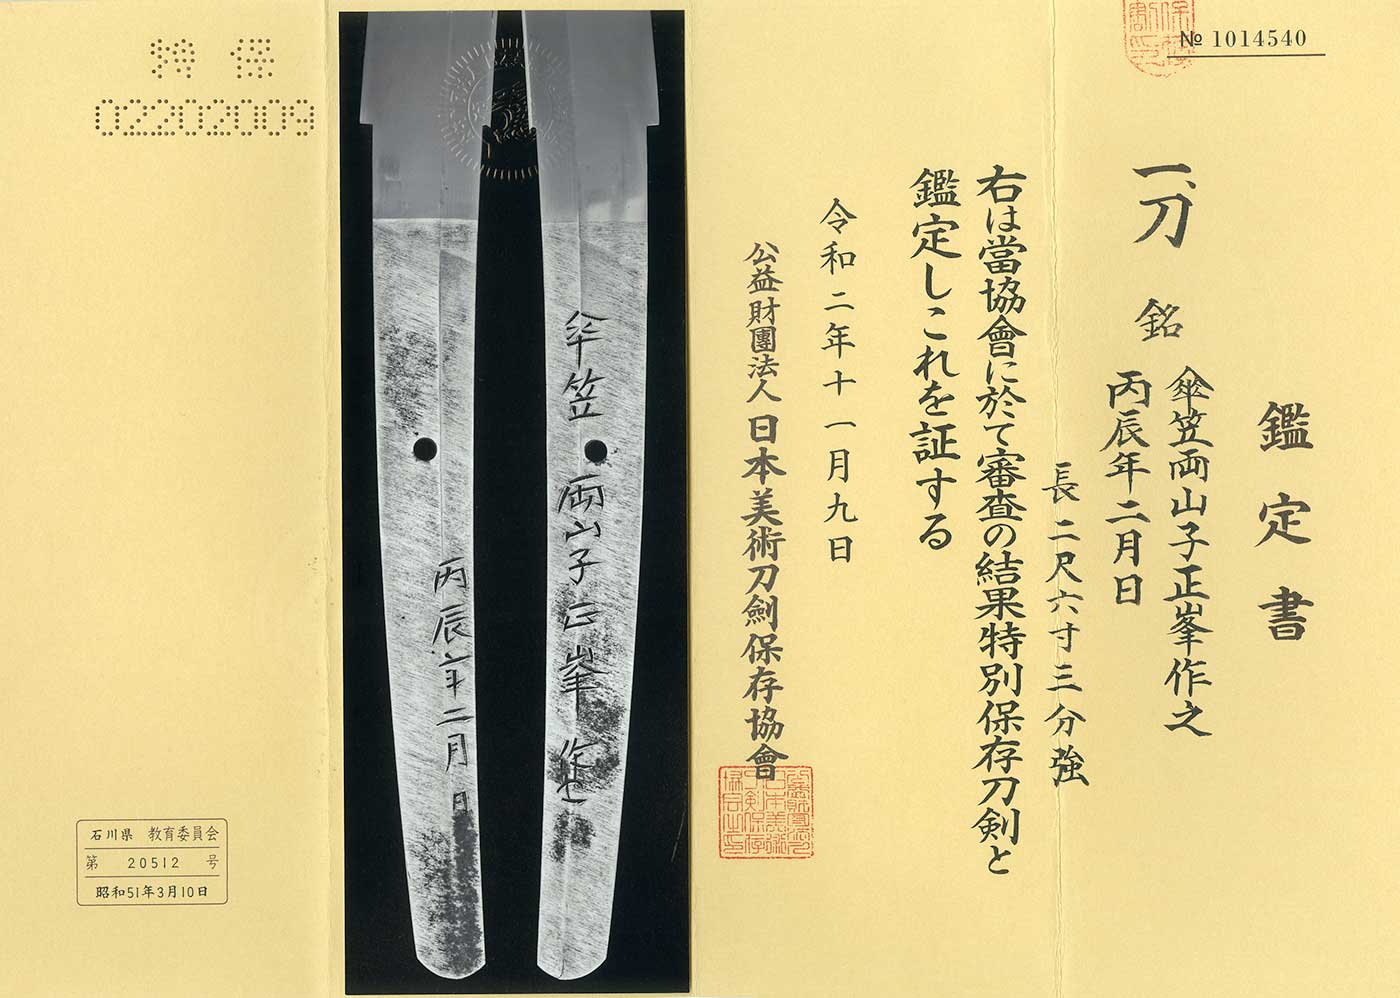 № 1014540
鑑定書
一、刀 銘 傘笠両山子正峯作之
丙辰年二月日
長二尺六寸三分強
右は當協會に於て審査の結果特別保存刀剣と
鑑定しこれを証する
令和二年十一月九日
公益財團法人日本美術刀劍保存協會
傘笠両山子正峯作之
丙辰年二月日
特保
02202009
石川県 教育委員会
第 20512 号
昭和51年3月10日